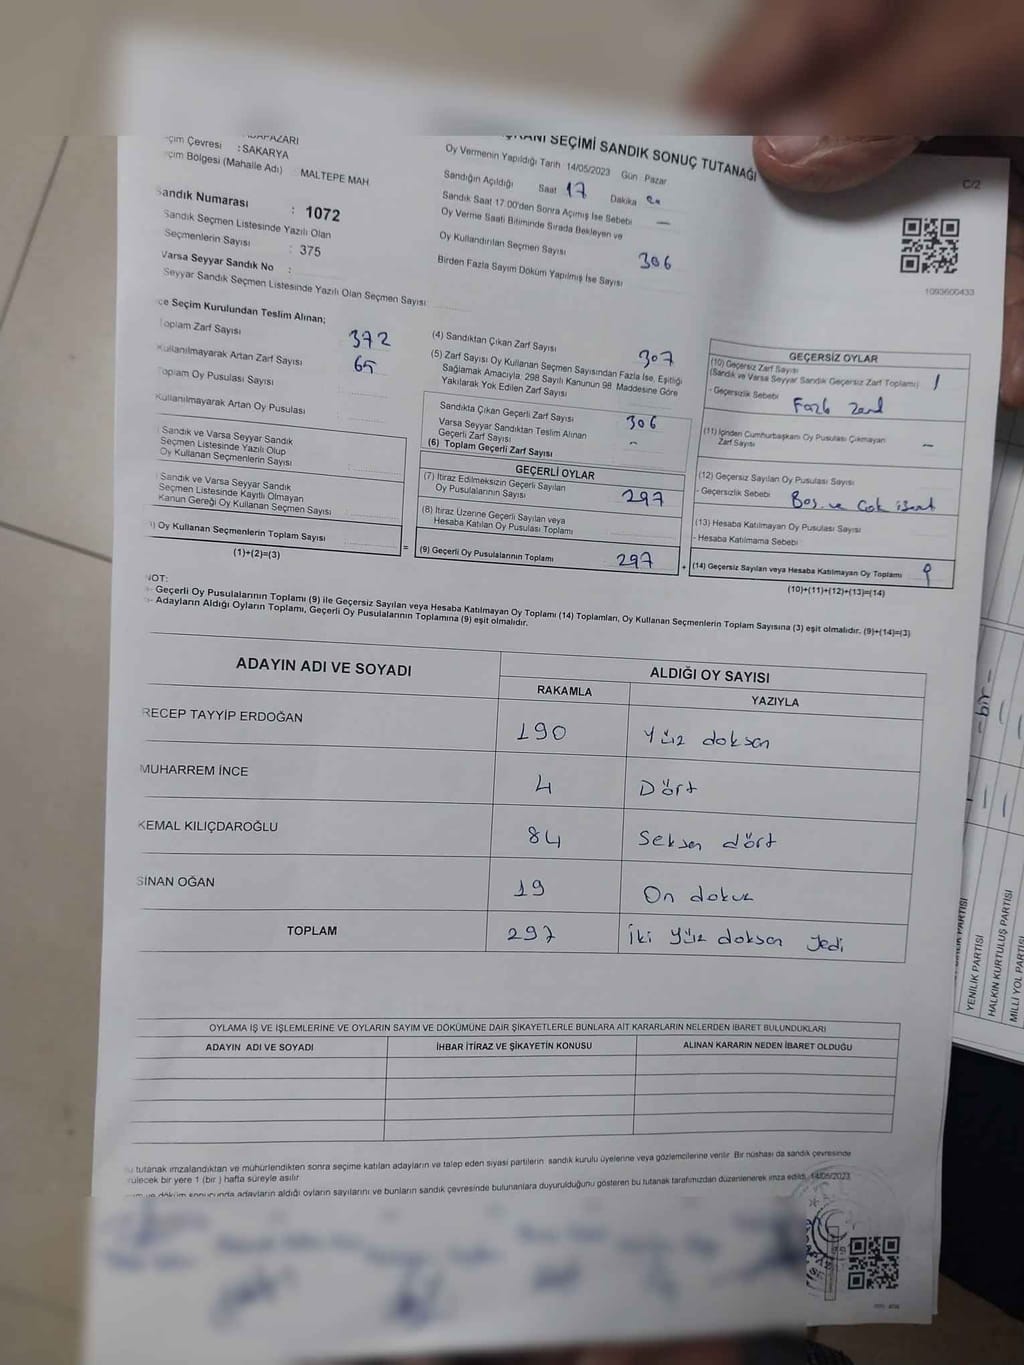 SEÇİMİ SANDIK SONUÇ TUTANAĞI
C/2
: SAKARYA
MALTEPE MAH
Sandık Numarası : 1072
Sandık Seçmen Listesinde Yazılı Olan
Seçmenlerin Sayısı : 375
Varsa Seyyar Sandık No :
Seyyar Sandık Seçmen Listesinde Yazılı Olan Seçmen Sayısı
Oy Vermenin Yapıldığı Tarih 14/05/2023 Gün : Pazar
Sandığın Açıldığı Saat 17 Dakika
Sandık Saat 17.00'den Sonra Açmış İse Sebebi —
Oy Verme Saati Bitiminde Sırada Bekleyen ve
Oy Kullandırılan Seçmen Sayısı 306
Birden Fazla Sayım Döküm Yapılmış İse Sayısı
1093600433
ce Seçim Kurulundan Teslim Alınan;
Toplam Zarf Sayısı 372
Kullanılmayarak Artan Zarf Sayısı 65
Toplam Oy Pusulası Sayısı
Kullanılmayarak Artan Oy Pusulası
Sandık ve Varsa Seyyar Sandık
Seçmen Listesinde Yazılı Olup
Oy Kullanan Seçmenlerin Sayısı
Sandık ve Varsa Seyyar Sandık
Seçmen Listesinde Kayıtlı Olmayan
Kanun Gereği Oy Kullanan Seçmen Sayısı
Oy Kullanan Seçmenlerin Toplam Sayısı =
(1)+(2)=(3)
(4) Sandıktan Çıkan Zarf Sayısı 307
(5) Zarf Sayısı Oy Kullanan Seçmen Sayısından Fazla İse, Eşitliği
Sağlamak Amacıyla, 298 Sayılı Kanunun 98 Maddesine Göre
Yakılarak Yok Edilen Zarf Sayısı
Sandıkta Çıkan Geçerli Zarf Sayısı 306
Varsa Seyyar Sandıktan Teslim Alınan
Geçerli Zarf Sayısı -
(6) Toplam Geçerli Zarf Sayısı
GEÇERLİ OYLAR
(7) İtiraz Edilmeksizin Geçerli Sayılan
Oy Pusulalarının Sayısı 297
(8) İtiraz Üzerine Geçerli Sayılan veya
Hesaba Katılan Oy Pusulası Toplamı
(9) Geçerli Oy Pusulalarının Toplamı 297 +
GEÇERSİZ OYLAR
(10) Geçersiz Zarf Sayısı
(Sandık ve Varsa Seyyar Sandık Geçersiz Zarf Toplamı) 1
- Geçersizlik Sebebi Fazla Zarf
(11) İçinden Cumhurbaşkanı Oy Pusulası Çıkmayan
Zarf Sayısı —
(12) Geçersiz Sayılan Oy Pusulası Sayısı
- Geçersizlik Sebebi Boş ve Çok işaret
(13) Hesaba Katılmayan Oy Pusulası Sayısı
- Hesaba Katılmama Sebebi
(14) Geçersiz Sayılan veya Hesaba Katılmayan Oy Toplamı 9
(10)+(11)+(12)+(13)=(14)
NOT:
- Geçerli Oy Pusulalarının Toplamı (9) ile Geçersiz Sayılan veya Hesaba Katılmayan Oy Toplamı (14) Toplamları, Oy Kullanan Seçmenlerin Toplam Sayısına (3) eşit olmalıdır. (9)+(14)=(3)
- Adayların Aldığı Oyların Toplamı, Geçerli Oy Pusulalarının Toplamına (9) eşit olmalıdır.
ADAYIN ADI VE SOYADI ALDIĞI OY SAYISI
RAKAMLA YAZIYLA
RECEP TAYYİP ERDOĞAN 190 Yüz doksan
MUHARREM İNCE 4 Dört
KEMAL KILIÇDAROĞLU 84 Seksen dört
SİNAN OĞAN 19 On dokuz
TOPLAM 297 İki yüz doksan yedi
OYLAMA İŞ VE İŞLEMLERİNE VE OYLARIN SAYIM VE DÖKÜMÜNE DAİR ŞİKAYETLERLE BUNLARA AİT KARARLARIN NELERDEN İBARET BULUNDUKLARI
ADAYIN ADI VE SOYADI İHBAR İTİRAZ VE ŞİKAYETİN KONUSU ALINAN KARARIN NEDEN İBARET OLDUĞU
tutanak imzalandıktan ve mühürlendikten sonra seçime katılan adayların ve talep eden siyasi partilerin sandık kurulu üyelerine veya gözlemcilerine verilir. Bir nüshası da sandık çevresinde
bir yere 1 (bir) hafta süreyle asılır
döküm sonucunda adayların aldığı oyların sayılarını ve bunların sandık çevresinde bulunanlara duyurulduğunu gösteren bu tutanak tarafımızdan düzenlenerek imza edildi. 14/05/2023
-bir-
YENİLİK PARTİSİ
HALKIN KURTULUŞ PARTİSİ
MİLLİ YOL PARTİSİ